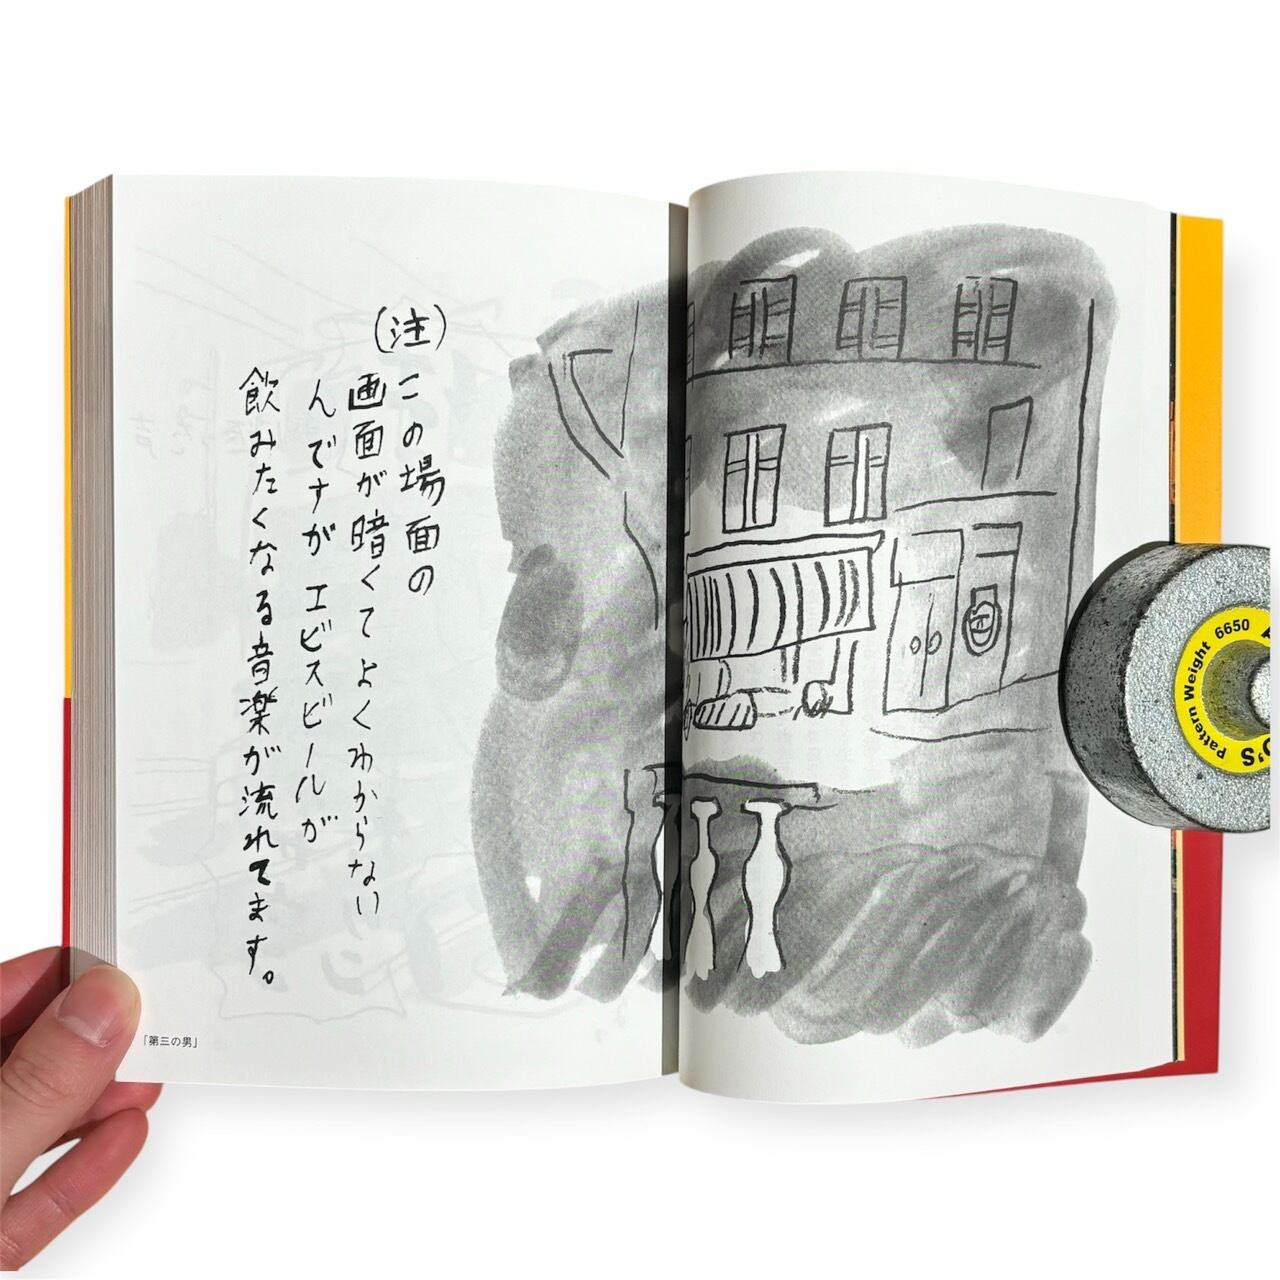 (注)
この場面の
画面が暗くてよくわからない
んですが ヱビスビールが
飲みたくなる音楽が流れてます。
「第三の男」
Pattern Weight 6650